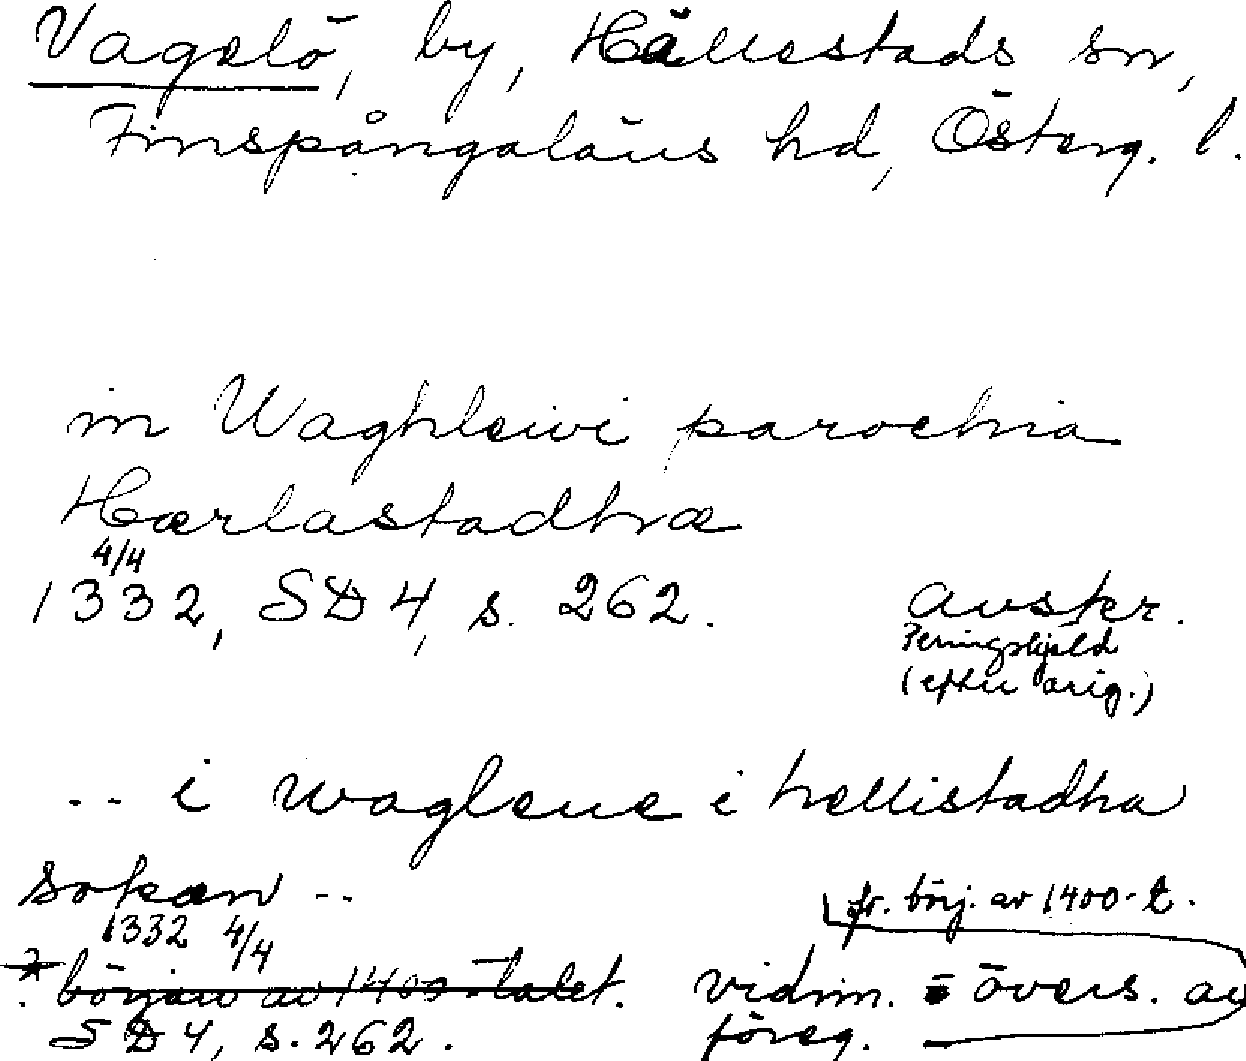 Vagelö, by, Hällestads sn,
Finspångaläns hd, Österg. l.
in Waghlewi parochia
Hærlastadhræ
4/4
1332, SD 4, s. 262. avskr.
Peringskjöld
(efter orig.)
.. i wagleue i hellistadha
sokæn ..
fr. börj. av 1400-t.
1332 4/4
början av 1400-talet. vidim. övers. av
SD 4, s. 262. föreg.